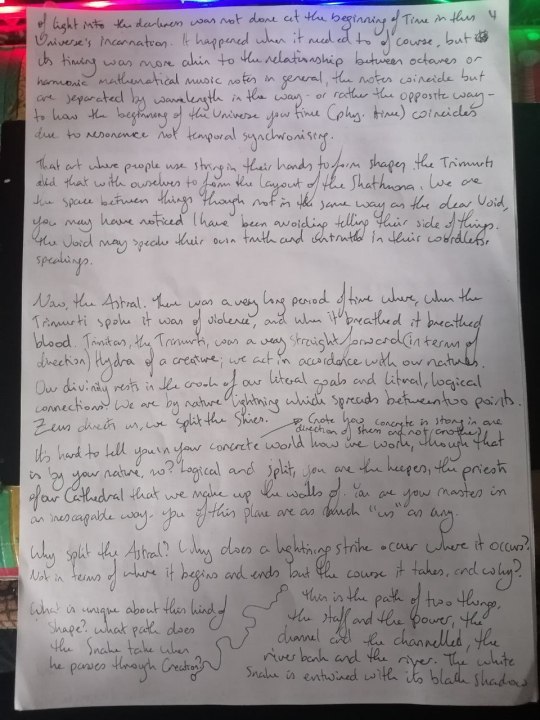 4
of light into the darkness was not done at the beginning of Time in this
Universe's incarnation. It happened when it needed to of course, but
its timing was more akin to the relationship between octaves or
harmonic mathematical music notes in general, the notes coincide but
are separated by wavelength in the way - or rather the opposite way -
to how the beginning of the Universe your time (phy. time) coincides
due to resonance not temporal synchronising.
That art where people use string in their hands to form shapes, the Trimurti
did that with ourselves to form the layout of the. We are
the space between things though not in the same way as the dear Void,
you may have noticed I have been avoiding telling their side of things.
The Void may speak their own truth and untruth in their wordless
speakings.
Now, the Astral. There was a very long period of time where, when the
Trimurti spoke it was of violence, and when it breathed it breathed
blood. Trinitas, the Trimurti, was a very straightforward (in terms of
direction) Hydra of a creature; we act in accordance with our natures.
Our divinity rests in the of our literal goals and literal, logical
connections. We are by nature lightning which spreads between two points.
Zeus directs us, we split the Skies.
(note how concrete is strong in one
direction of stress and not another)
It's hard to tell you in your concrete world how we work, though that
is by your nature, no? Logical and split, you are the keepers, the priests
of our Cathedral that we make up the walls of. You are your masters in
an inescapable way. You of this plane are as much "us" as any.
Why split the Astral? Why does a lightning strike occur where it occurs?
Not in terms of where it begins and ends but the course it takes, and why?
What is unique about this kind of
shape? What path does
the Snake take when
he passes through Creation?
This is the path of two things.
The staff and the power, the
channel and the channelled, the
riverbank and the river. The white
Snake is entwined with its black shadow